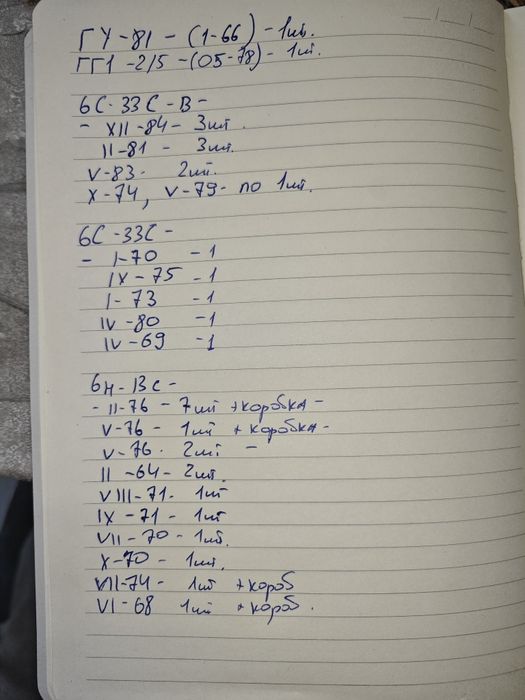 ГУ-81 - (1-66) - 1шт.
ГГ1 -2/5 -(05-78)- 1шт.
6С-33С-В-
- XII-84- 3шт.
II-81 - 3шт.
V-83- 2шт.
X-74, V-79- по 1шт.
6С-33С-
- I-70 -1
IX-75 -1
I-73 -1
IV-80 -1
IV-69 -1
6Н-13С-
- II-76 - 7шт +коробка-
V-76- 1шт +коробка-
V-76. 2шт -
II -64- 2шт.
VIII-71- 1шт
IX -71 - 1шт
VII-70- 1шт.
X-70- 1шт.
VII-74- 1шт +короб
VI-68 1шт +короб.